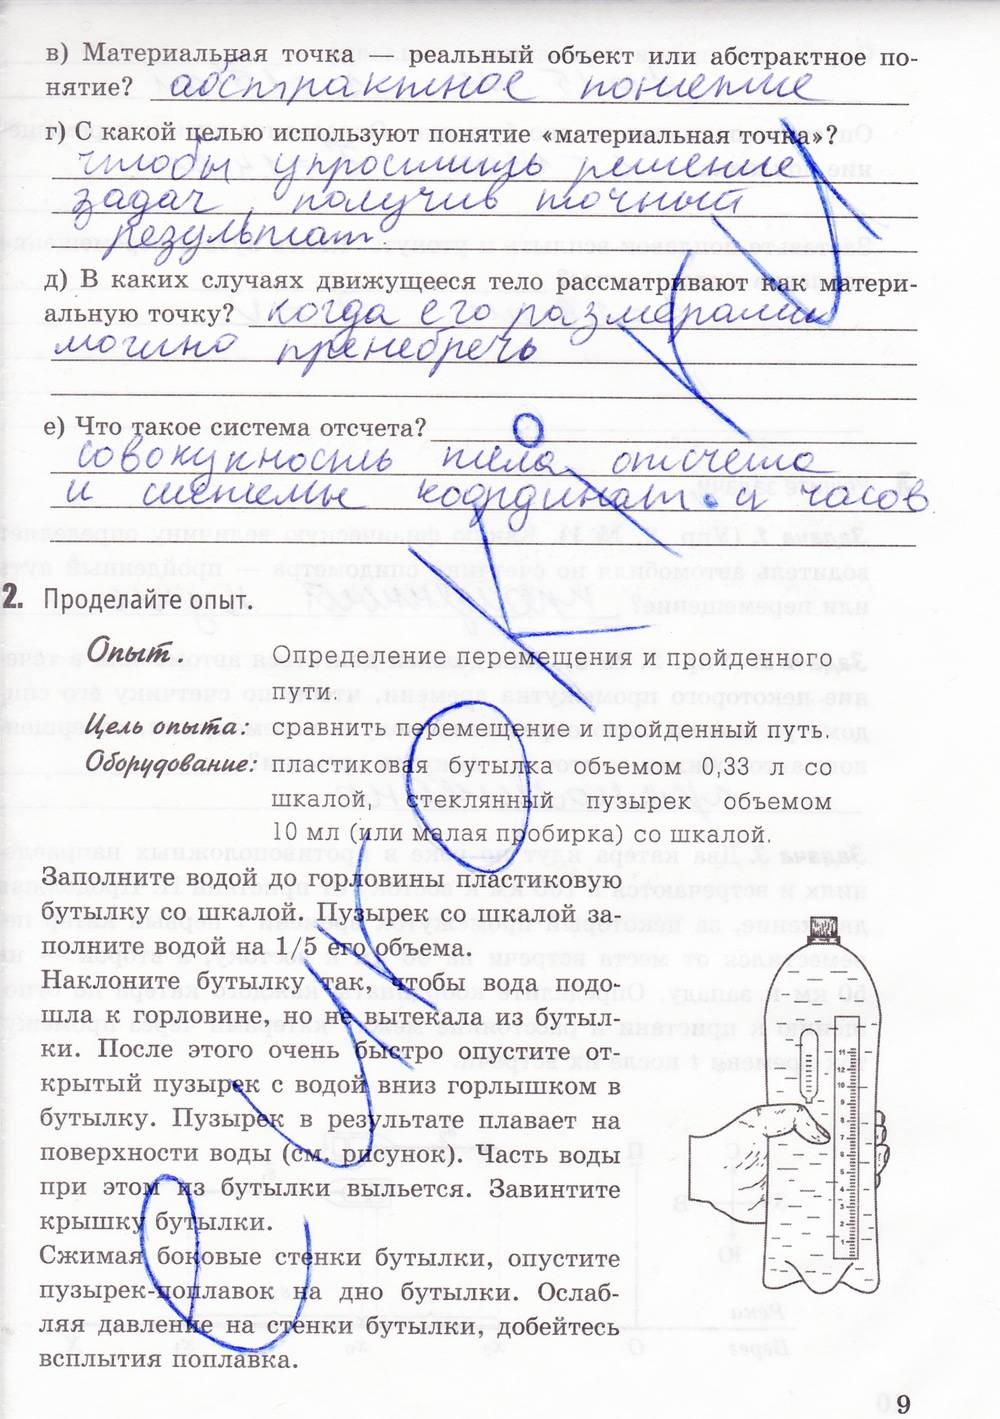 в) Материальная точка — реальный объект или абстрактное по-
нятие? абстрактное понятие
г) С какой целью используют понятие «материальная точка»?
чтобы упростить решение
задач, получив точный
результат
д) В каких случаях движущееся тело рассматривают как матери-
альную точку? когда его размерами
можно пренебречь
е) Что такое система отсчета?
совокупность тела отсчета
и системы координат и часов
2. Проделайте опыт.
Опыт. Определение перемещения и пройденного
пути.
Цель опыта: сравнить перемещение и пройденный путь.
Оборудование: пластиковая бутылка объемом 0,33 л со
шкалой, стеклянный пузырек объемом
10 мл (или малая пробирка) со шкалой.
Заполните водой до горловины пластиковую
бутылку со шкалой. Пузырек со шкалой за-
полните водой на 1/5 его объема.
Наклоните бутылку так, чтобы вода подо-
шла к горловине, но не вытекала из бутыл-
ки. После этого очень быстро опустите от-
крытый пузырек с водой вниз горлышком в
бутылку. Пузырек в результате плавает на
поверхности воды (см. рисунок). Часть воды
при этом из бутылки выльется. Завинтите
крышку бутылки.
Сжимая боковые стенки бутылки, опустите
пузырек-поплавок на дно бутылки. Ослаб-
ляя давление на стенки бутылки, добейтесь
всплытия поплавка.
9